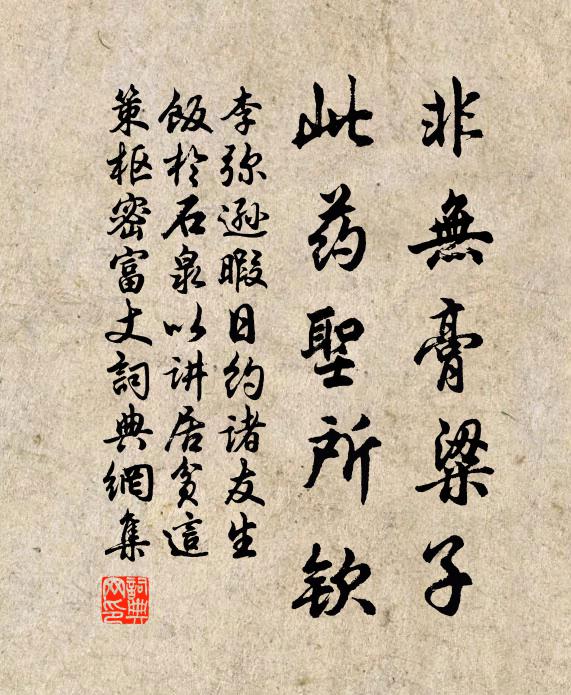 非無膏粱子
此药聖所欽
李弥遜暇日约诸友生
飯於石泉以讲居贫這
策枢密富丈詞典網集
詞典網印